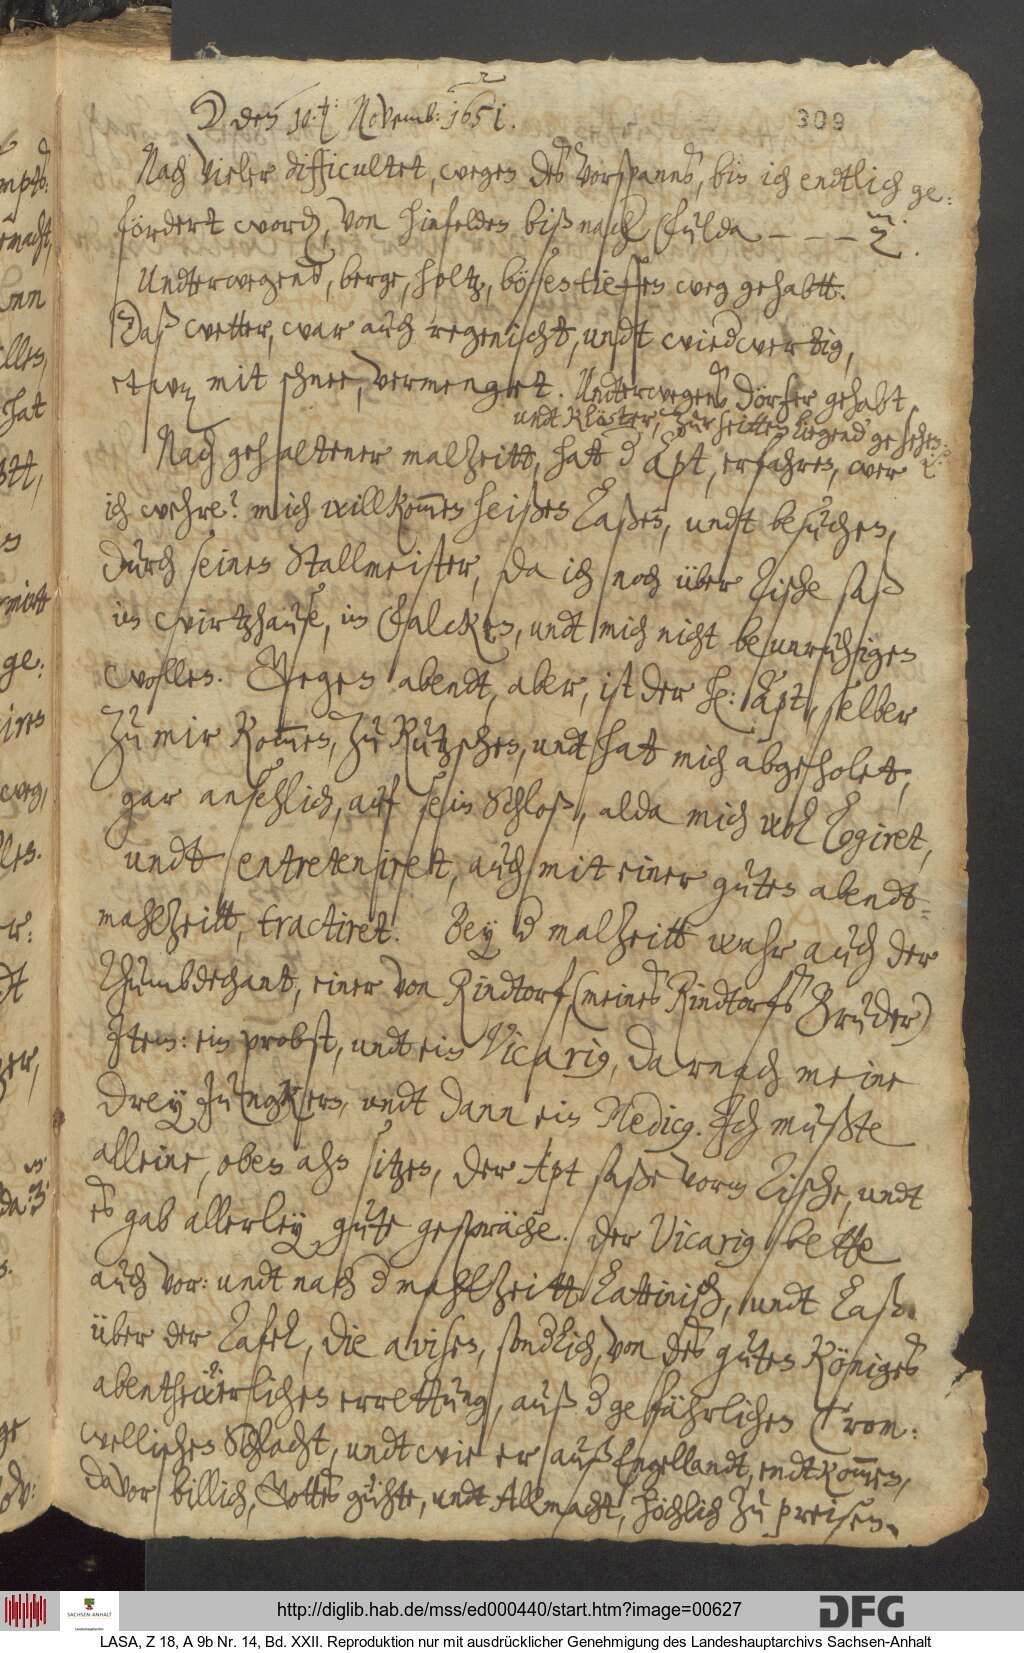 ☽ den 10.t: Novemb: 1651.
309
Nach vieler difficultet, wegen des vorspanns, bin ich endtlich ge-
fördert word, von Hinfelden biß nach Fulda - - - 2
Underwegens, berge, holtz, böses tieffes weg gehabtt.
Daß wetter, war auch regenicht, undt wiedwertig,
etwz mit schnee, vermenget. Underwegens dörfer gehabt,
undt Klöster, zur seitten liegend gesehen.
Nach gehaltener malzeitt, hatt d Apt, erfahren, wer
ich wehre? mich willkommen heißen laßen, undt besuchen,
durch seinen Stallmeister, da ich noch über Tische saß
im wirtzhause, im Falcken, undt mich nicht beunruhigen
wollen. Gegen abendt, aber, ist der he: Apt, selber
zu mir kommen, zu Kutzschen, undt hat mich abgeholet,
gar ansehlich, auf sein Schloß, alda mich wol logiret,
undt entreteniret, auch mit einer guten abendt-
mahlzeitt, tractiret. Bey d malzeitt wahr auch der
Thumbdechant, einer von Rindtorf, (meines Rindtorfs Bruder)
Item: ein probst, undt ein Vicarig, darnach meine
drey Jungkern, undt dann ein Medicg. Ich mußte
alleine, oben ahn sitzen, der Apt saße vorm Tische, undt
es gab allerley gute gespräche. Der Vicarig bette
auch vor: undt nach d mahlzeitt Lattinisch, undt laß
über der Tafel, die avisen, sondlich, von des guten Königes
abentheüerlichen errettung, auß d gefährlichen Crom-
wellischen Schlacht, undt wie er auß Engellandt, endtkommen,
davor billich, Gottes gühte, undt Allmacht, höchlich zu preisen.
http://diglib.hab.de/mss/ed000440/start.htm?image=00627
SACHSEN-ANHALT
DFG
LASA, Z 18, A 9b Nr. 14, Bd. XXII. Reproduktion nur mit ausdrücklicher Genehmigung des Landeshauptarchivs Sachsen-Anhalt